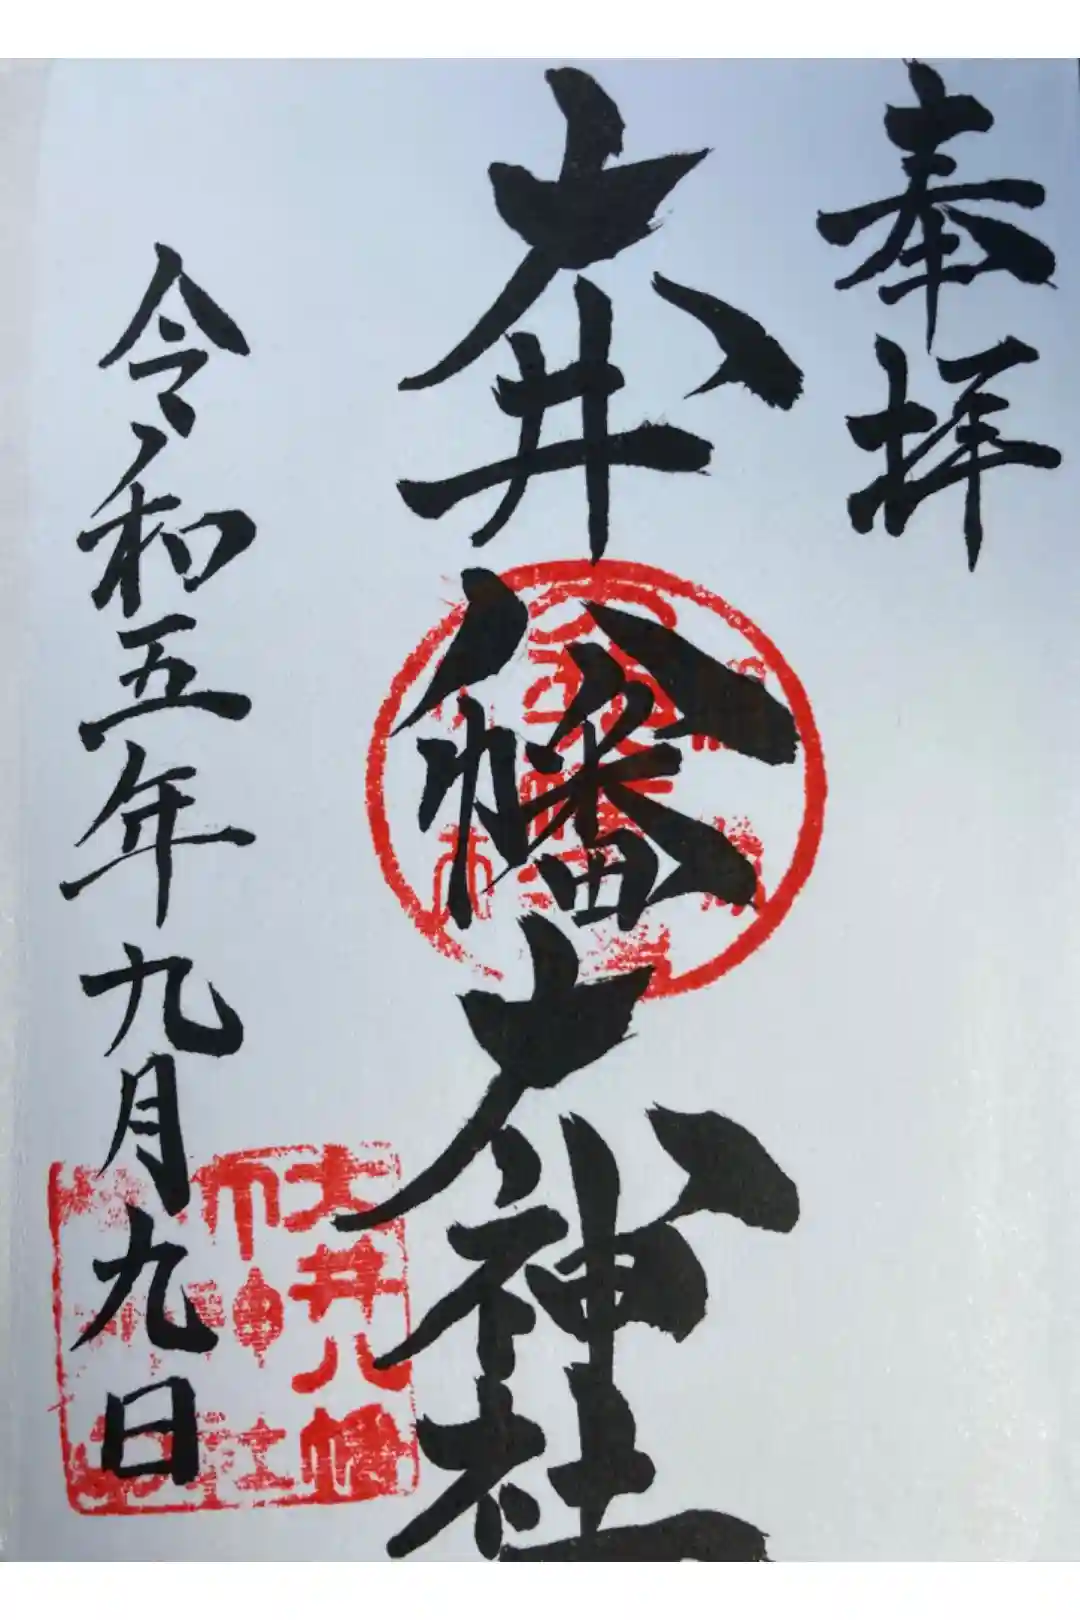 奉拝
大井八幡大神社
令和五年九月九日
大井八幡